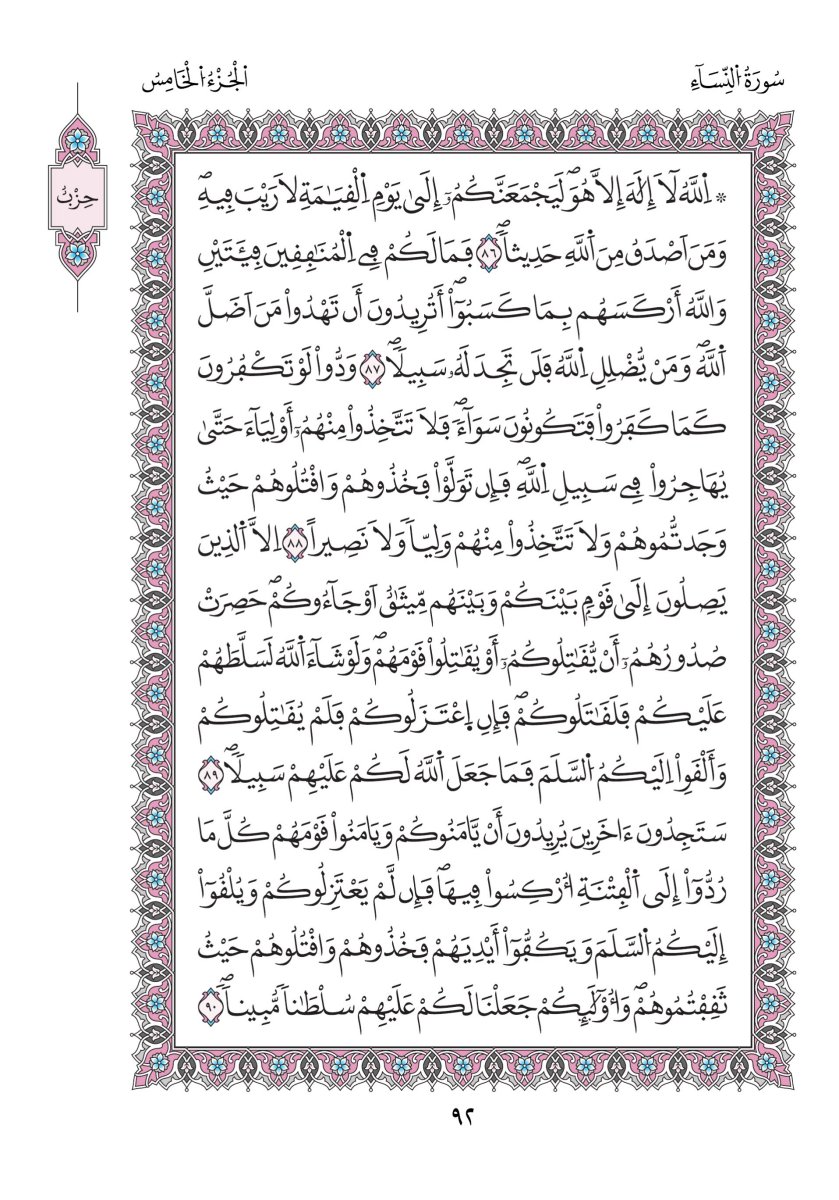 سُورَةُ اُ۬لنِّسَآءِ
اَ۬لْجُزْءُ اُ۬لْخَامِسُ
حِزْبٌ
* اِ۬للَّهُ لَآ إِلَٰهَ إِلَّا هُوَۖ لَيَجْمَعَنَّكُمُۥٓ إِلَىٰ يَوْمِ اِ۬لْقِيَٰمَةِ لَا رَيْبَ فِيهِۖ
وَمَنَ اَصْدَقُ مِنَ اَ۬للَّهِ حَدِيثاٗۖ ٨٦ فَمَا لَكُمْ فِے اِ۬لْمُنَٰفِقِينَ فِئَتَيْنِ
وَاللَّهُ أَرْكَسَهُم بِمَا كَسَبُوٓاْۖ أَتُرِيدُونَ أَن تَهْدُواْ مَنَ اَضَلَّ
اَ۬للَّهُۖ وَمَنْ يُّضْلِلِ اِ۬للَّهُ فَلَن تَجِدَ لَهُۥ سَبِيلاٗۖ ٨٧ وَدُّواْ لَوْ تَكْفُرُونَ
كَمَا كَفَرُواْ فَتَكُونُونَ سَوَآءٗۖ فَلَا تَتَّخِذُواْ مِنْهُمُۥٓ أَوْلِيَآءَ حَتَّىٰ
يُهَاجِرُواْ فِے سَبِيلِ اِ۬للَّهِۖ فَإِن تَوَلَّوْاْ فَخُذُوهُمْ وَاقْتُلُوهُمْ حَيْثُ
وَجَدتُّمُوهُمْ وَلَا تَتَّخِذُواْ مِنْهُمْ وَلِيّاٗ وَلَا نَصِيراً ٨٨ اِلَّا اَ۬لذِينَ
يَصِلُونَ إِلَىٰ قَوْمِۢ بَيْنَكُمْ وَبَيْنَهُم مِّيثَٰقٌ اَوْ جَآءُوكُمْۖ حَصِرَتْ
صُدُورُهُمُۥٓ أَنْ يُّقَٰتِلُوكُمُۥٓ أَوْ يُقَٰتِلُواْ قَوْمَهُمْۖ وَلَوْ شَآءَ اَ۬للَّهُ لَسَلَّطَهُمْ
عَلَيْكُمْ فَلَقَٰتَلُوكُمْۖ فَإِنِ اِ۪عْتَزَلُوكُمْ فَلَمْ يُقَٰتِلُوكُمْ
وَأَلْقَوِاْ اِلَيْكُمُ اُ۬لسَّلَمَ فَمَا جَعَلَ اَ۬للَّهُ لَكُمْ عَلَيْهِمْ سَبِيلاٗۖ ٨٩
سَتَجِدُونَ ءَاخَرِينَ يُرِيدُونَ أَنْ يَّامَنُوكُمْ وَيَامَنُواْ قَوْمَهُمْ كُلَّ مَا
رُدُّوٓاْ إِلَى اَ۬لْفِتْنَةِ أُرْكِسُواْ فِيهَاۖ فَإِن لَّمْ يَعْتَزِلُوكُمْ وَيُلْقُوٓاْ
إِلَيْكُمُ اُ۬لسَّلَمَ وَيَكُفُّوٓاْ أَيْدِيَهُمْ فَخُذُوهُمْ وَاقْتُلُوهُمْ حَيْثُ
ثَقِفْتُمُوهُمْۖ وَأُوْلَٰٓئِكُمْ جَعَلْنَا لَكُمْ عَلَيْهِمْ سُلْطَٰناٗ مُّبِيناٗۖ ٩٠
٩٢